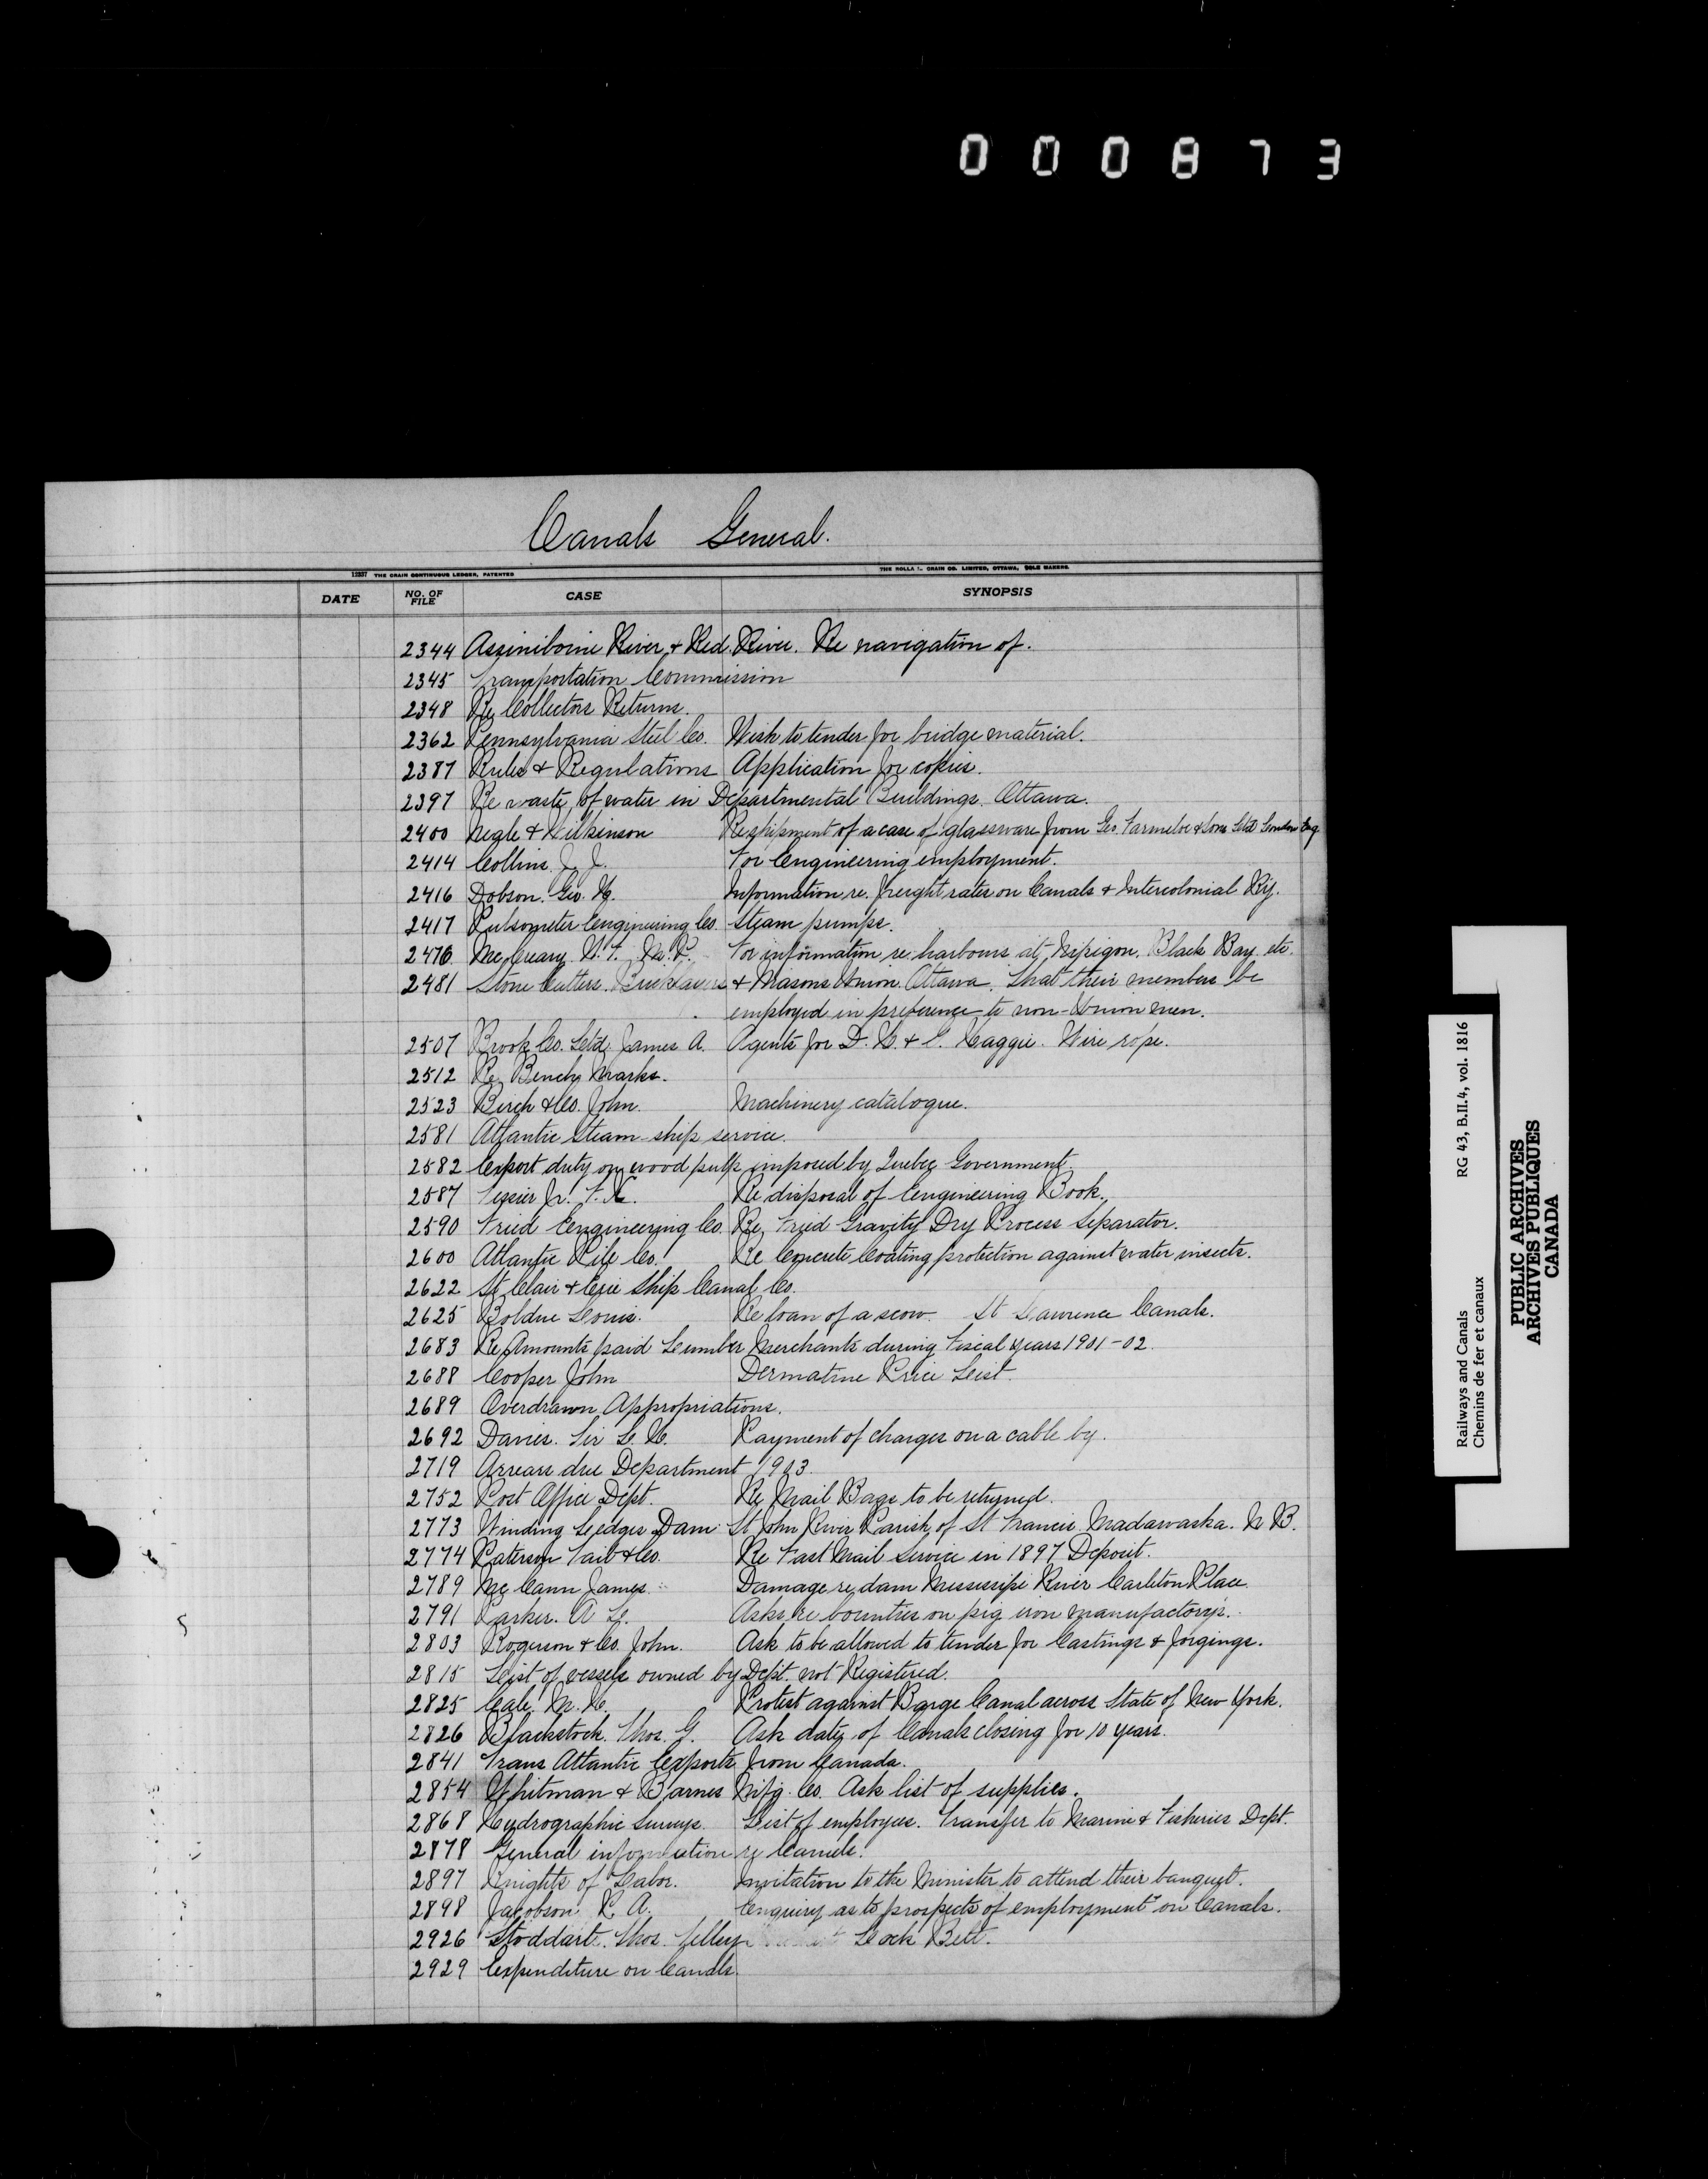 000873
Canals General.
12237 THE CRAIN CONTINUOUS LEDGER, PATENTED
THE ROLLA L. CRAIN CO. LIMITED, OTTAWA, SOLE MAKERS.
DATE NO. OF FILE CASE SYNOPSIS
2344 Assiniboine River & Red River. Re navigation of.
2345 Transportation Commission
2348 Re Collectors Returns.
2362 Pennsylvania Steel Co. Wish to tender for bridge material.
2387 Rules & Regulations Application for copies.
2397 Re waste of water in Departmental Buildings. Ottawa.
2400 Negle & Wilkinson Reshipment of a case of glassware from Geo. Farmeloe & Sons Ltd London Eng
2414 Collins J. J. For Engineering employment.
2416 Dobson. Geo. H. Information re. freight rates on Canals & Intercolonial Ry.
2417 Pulsometer Engineering Co. Steam pumps.
2476 McCreary W. F. M.P. For information re harbours at Nipigon. Black Bay. etc.
2481 Stone Cutters. Bricklayers & Masons Union. Ottawa. That their members be
employed in preference to non-Union men.
2507 Brook Co. Ltd. James A. Agents for D. H. & G. Haggie. Wire rope.
2512 Re Bench Marks.
2523 Birch & Co. John. Machinery catalogue.
2581 Atlantic Steam-ship service.
2582 Export duty on wood pulp imposed by Quebec Government.
2587 Tessier Jr. F. X. Re disposal of Engineering Book.
2590 Fried Engineering Co. Re Fried Gravity Dry Process Separator.
2600 Atlantic Pile Co. Re Concrete Coating protection against water insects.
2622 St Clair & Erie Ship Canal Co.
2625 Bolduc Louis. Re loan of a scow. St Lawrence Canals.
2683 Re Amounts paid Lumber Merchants during Fiscal years 1901-02.
2688 Cooper John Dermatine Price List.
2689 Overdrawn Appropriations.
2692 Davies. Sir L. H. Payment of charges on a cable by.
2719 Arrears due Department 1903.
2752 Post Office Dept. Re Mail Bags to be returned.
2773 Winding Ledges Dam St John River Parish of St Francis. Madawaska. N. B.
2774 Paterson Tait & Co. Re Fast Mail Service in 1897 Deposit.
2789 McCann James. Damage re dam Mississipi River Carleton Place.
2791 Parker. A L. Asks re bounties on pig iron manufactory's.
2803 Rogerson & Co. John. Ask to be allowed to tender for Castings & forgings.
2815 List of vessels owned by Dept. not Registered.
2825 Cale. M. H. Protest against Barge Canal across State of New York.
2826 Blackstock. Thos. G. Ask date of Canals closing for 10 years.
2841 Trans Atlantic Exports from Canada.
2854 Whitman & Barnes Mfg. Co. Ask list of supplies.
2868 Hydrographic Surveys. List of employees. Transfer to Marine & Fisheries Dept.
2878 General information re Canals.
2897 Knights of Labor. Invitation to the Minister to attend their banquet.
2898 Jacobson P. A. Enquiry as to prospects of employment on Canals.
2926 Stoddart. Thos. Lock Belt.
2929 Expenditure on Canals.
Railways and Canals RG 43, B.II.4, vol. 1816
Chemins de fer et canaux
PUBLIC ARCHIVES
ARCHIVES PUBLIQUES
CANADA